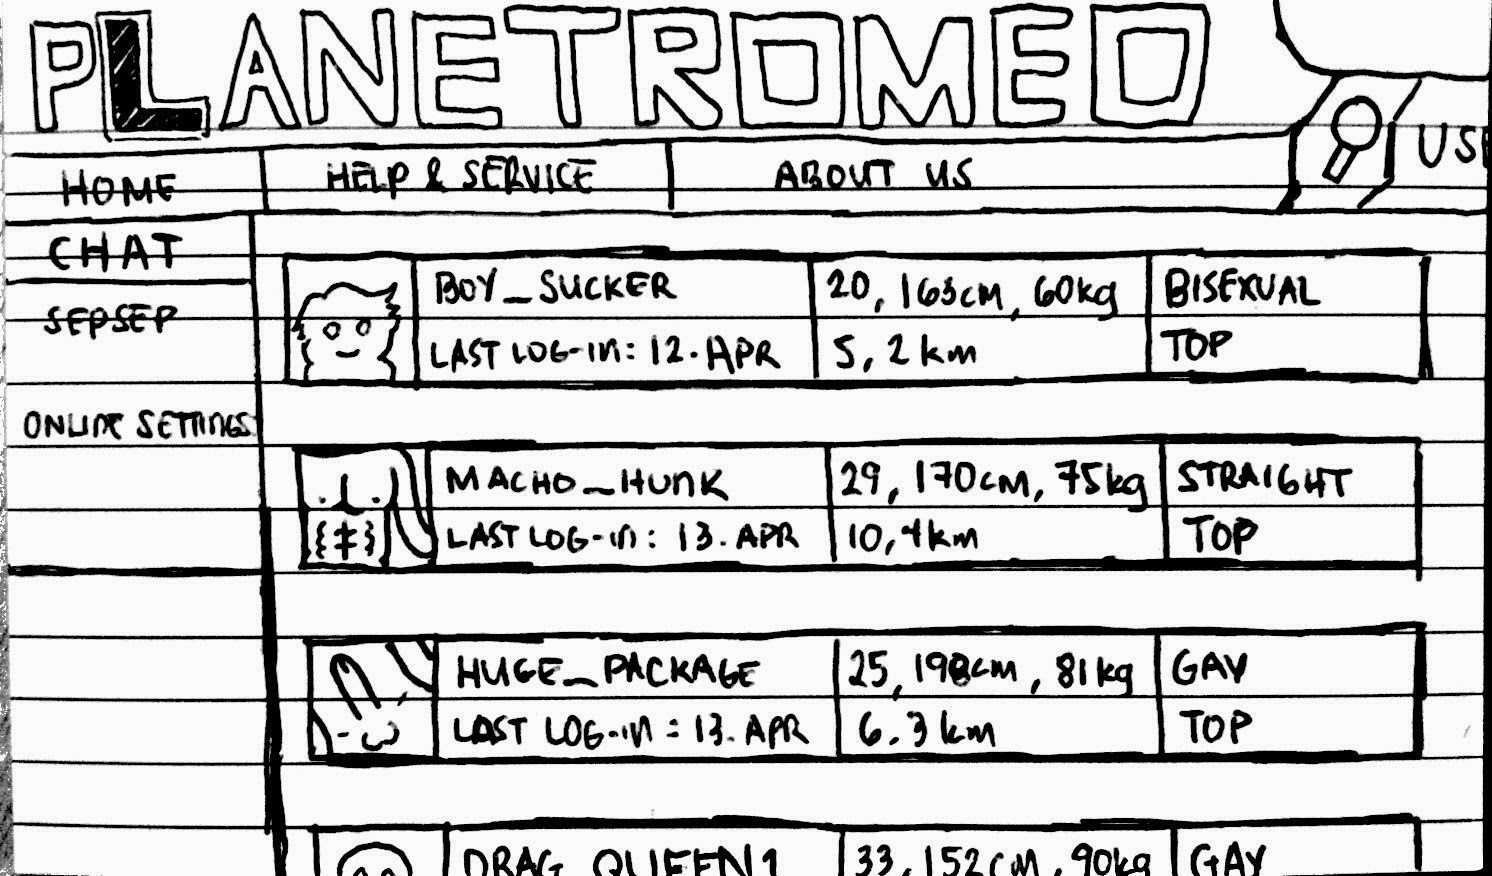 PLANETROMEO
HOME HELP & SERVICE ABOUT US
CHAT
SEPSEP
ONLINE SETTINGS
BOY_SUCKER 20, 163cm, 60kg BISEXUAL
LAST LOG-IN: 12. APR 5,2 km TOP
MACHO_HUNK 29, 170cm, 75kg STRAIGHT
LAST LOG-IN: 13. APR 10,4km TOP
HUGE_PACKAGE 25, 198cm, 81kg GAY
LAST LOG-IN: 13. APR 6.3 km TOP
DRAG_QUEEN1 33, 152cm, 90kg GAY